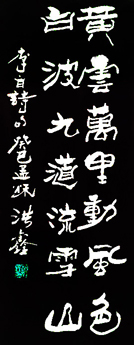 黃雲萬里動風色
白波九道流雪山
李白詩句癸巳孟秋洪鑫